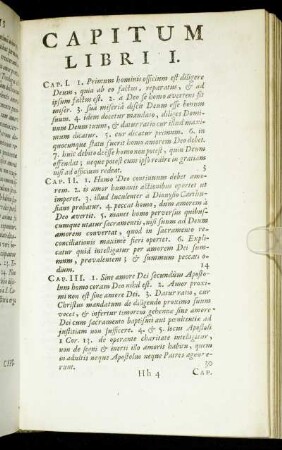 CAPITUM
LIBRI I.
CAP. I. 1. Primum hominis officium est diligere
Deum, quia ab eo factus, reparatus, & ad
ipsum factus est. 2. a Deo se homo avertens fit
miser. 3. sua miseria discit Deum esse bonum
suum. 4. idem docetur mandato, diliges Domi-
num Deum tuum, & datur ratio cur illud manda-
tum dicatur. 5. cur dicatur primum. 6. in
quocunque statu fuerit homo amorem Deo debet.
7. huic debito deesse homo non potest, quin Deum
offendat; neque potest cum ipso redire in gratiam
nisi ad officium redeat. 5
CAP. II. 1. Homo Deo continuum debet amo-
rem. 2. is amor humanis actionibus oportet ut
imperet. 3. illud luculenter à Dionysio Carthu-
siano probatur. 4. peccat homo, dum amorem à
Deo avertit. 5. manet homo perversus quibus-
cumque utatur sacramentis, nisi suum ad Deum
amorem convertat, quod in sacramento re-
conciliationis maximè fieri oportet. 6. Expli-
catur quid intelligatur per amorem Dei sum-
mum, prævalentem; & summum peccati o-
dium. 14
CAP. III. 1. Sine amore Dei secundum Aposto-
lum homo coram Deo nihil est. 2. Amor proxi-
mi non est sine amore Dei. 3. Datur ratio, cur
Christus mandatum de diligendo proximo suum
vocet, & infertur timorem gehennæ sine amore
Dei cum sacramento baptismi aut pœnitentiæ ad
justitiam non sufficere. 4. & 5. locus Apostoli
1 Cor. 13. de operante charitate intelligitur,
non de segni & inerti illo amoris habitu, quem
in adultis neque Apostolus neque Patres agnove-
runt. 30
Hh 4 CAP.